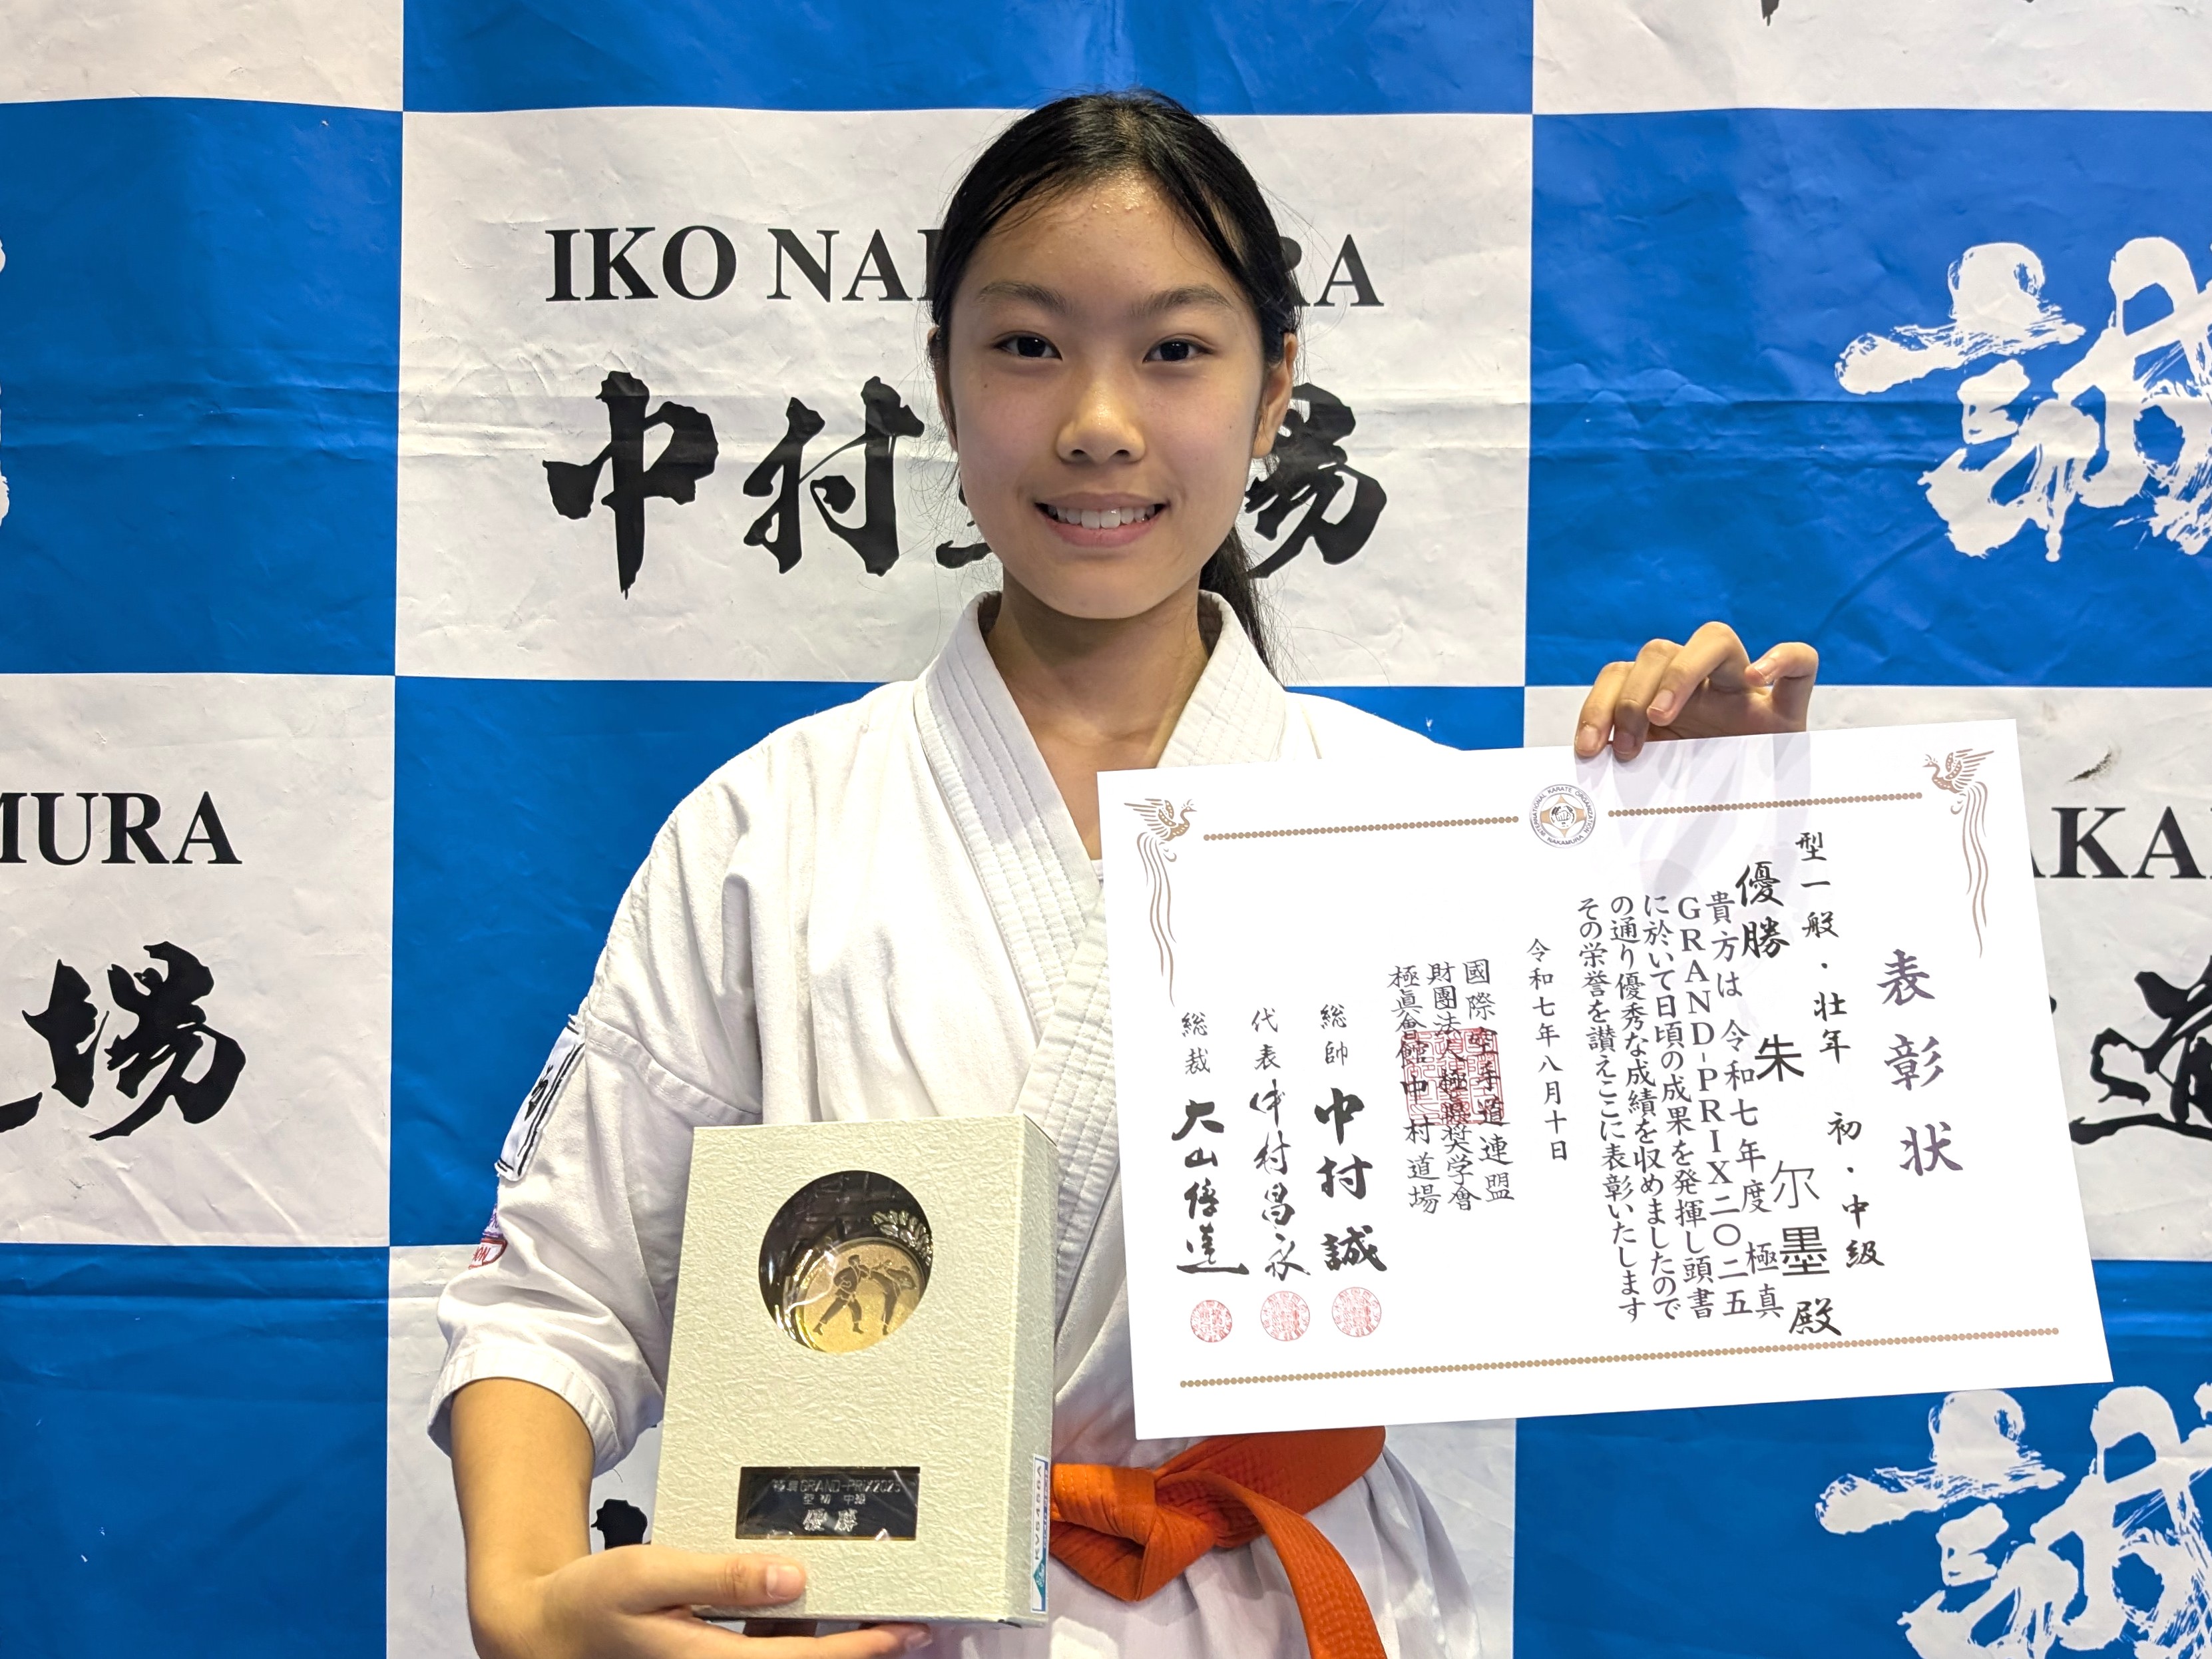 IKO NAKAMURA
中村道場
誠
MURA
場
NAKA
道
誠
INTERNATIONAL KARATE ORGANIZATION NAKAMURA
表彰状
型一般・壮年 初・中級
優勝 朱 尔墨殿
貴方は 令和七年度 極真
GRAND-PRIX二〇二五
に於いて日頃の成果を発揮し頭書
の通り優秀な成績を収めましたので
その栄誉を讃えここに表彰いたします
令和七年八月十日
國際空手道連盟
財團法人極真奨学會
極眞會館中村道場
総帥 中村誠
代表 中村昌永
総裁 大山倍達
極真GRAND-PRIX2025
型 初 中級
優勝